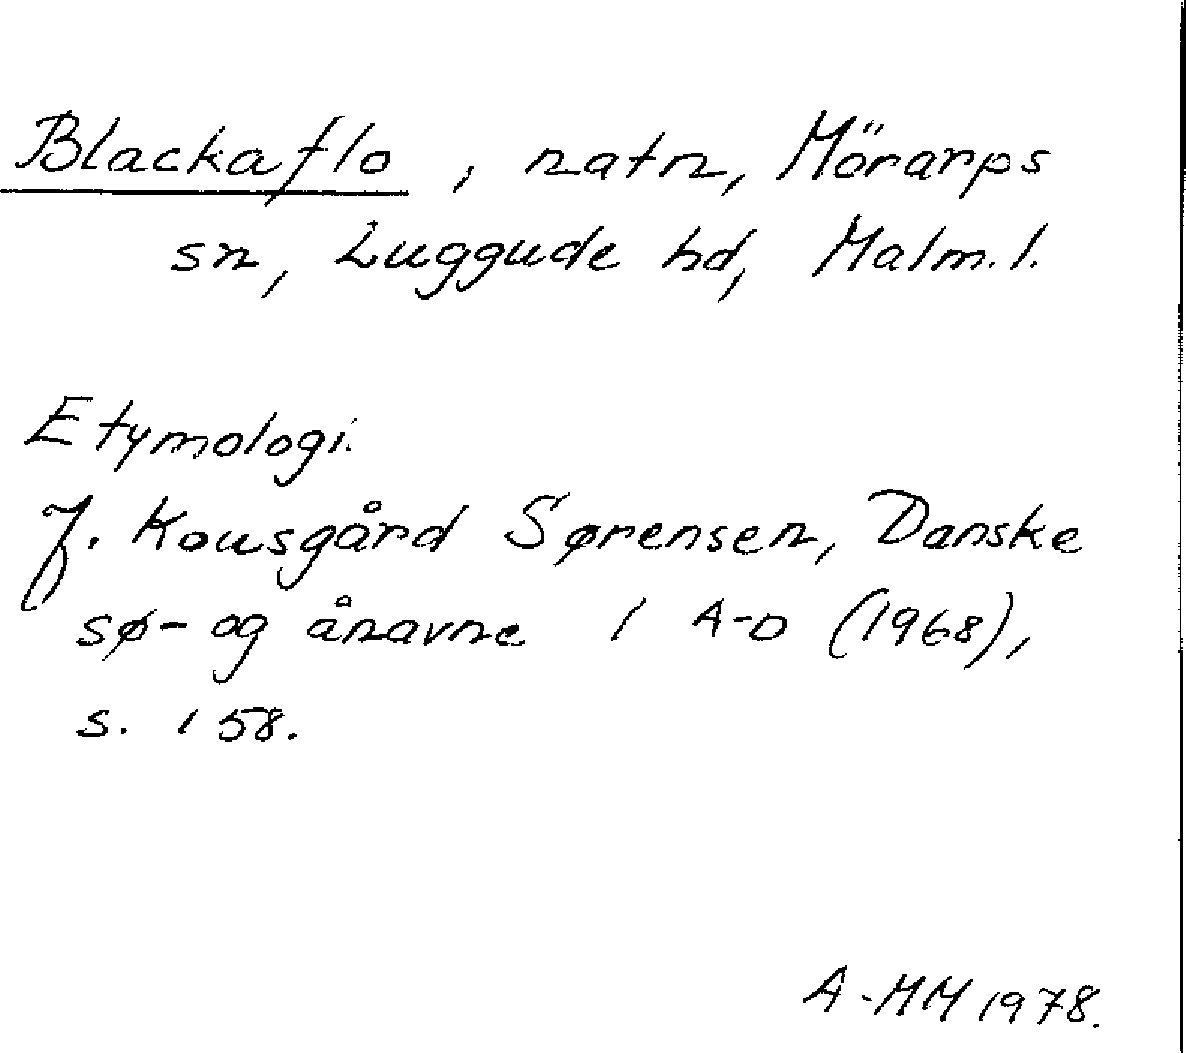 Blackaflo, natn, Mörarps
sn, Luggude hd, Malm. l.
Etymologi.
J. Kousgård Sørensen, Danske
sø- og ånavne 1 A-D (1968),
s. 158.
A-MM 1978.